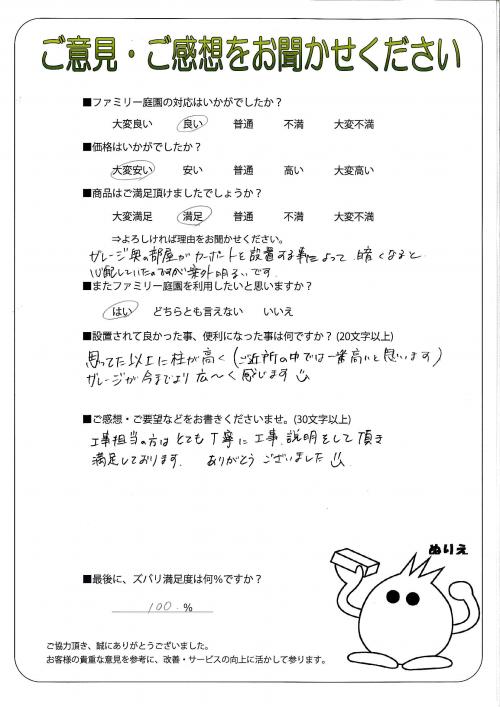 ご意見・ご感想をお聞かせください
■ファミリー庭園の対応はいかがでしたか？
大変良い 良い 普通 不満 大変不満
■価格はいかがでしたか？
大変安い 安い 普通 高い 大変高い
■商品はご満足頂けましたでしょうか？
大変満足 満足 普通 不満 大変不満
⇒よろしければ理由をお聞かせください。
ガレージ奥の部屋がカーポートを設置する事によって 暗くなると
心配していたのですが案外明るいです。
■またファミリー庭園を利用したいと思いますか？
はい どちらとも言えない いいえ
■設置されて良かった事、便利になった事は何ですか？(20文字以上)
思ってた以上に柱が高く(ご近所の中では一番高いと思います)
ガレージが今までより広〜く感じます
■ご感想・ご要望などをお書きくださいませ。(30文字以上)
工事担当の方はとても丁寧に工事、説明をして頂き
満足しております。 ありがとうございました
ぬりえ
■最後に、ズバリ満足度は何％ですか？
100 %
ご協力頂き、誠にありがとうございました。
お客様の貴重な意見を参考に、改善・サービスの向上に活かして参ります。